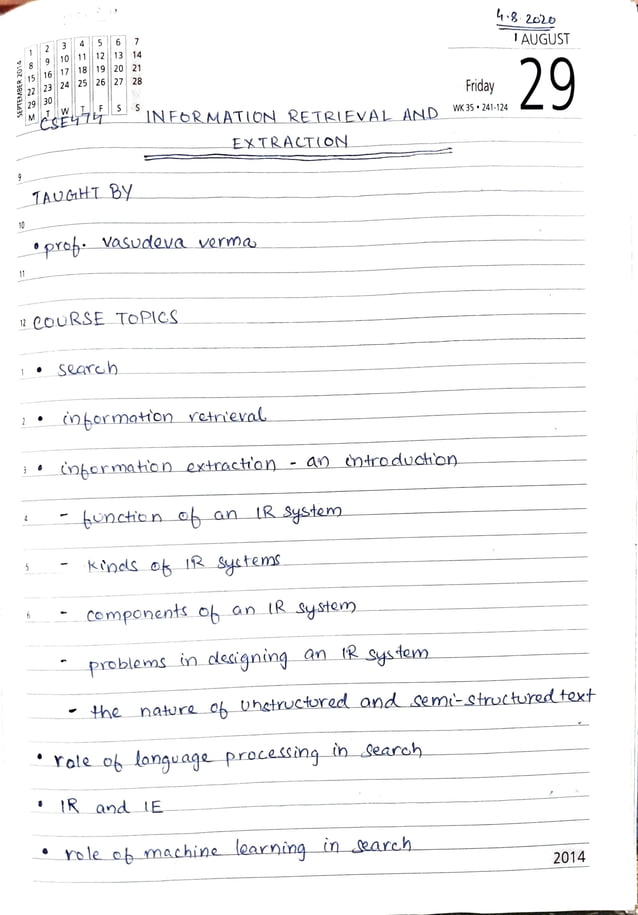 4.8.2020
1 AUGUST
SEPTEMBER 2014
1 2 3 4 5 6 7
8 9 10 11 12 13 14
15 16 17 18 19 20 21
22 23 24 25 26 27 28
29 30
M T W T F S S
Friday
WK 35 • 241-124
29
CSE474
INFORMATION RETRIEVAL AND
EXTRACTION
9
TAUGHT BY
10
• prof. vasudeva verma
11
12 COURSE TOPICS
1 • search
2 • information retrieval
3 • information extraction - an introduction
4 - function of an IR system
5 - kinds of IR systems
6 - components of an IR system
- problems in designing an IR system
- the nature of unstructured and semi-structured text
• role of language processing in search
• IR and IE
• role of machine learning in search
2014